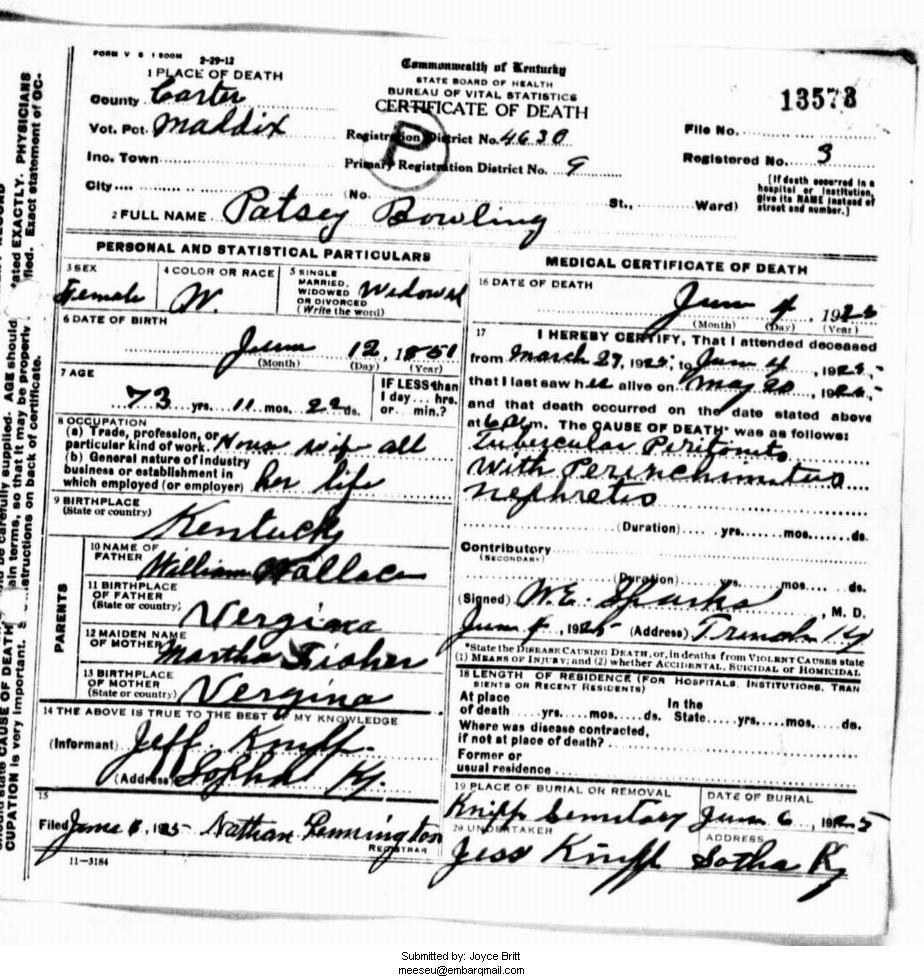 FORM V S 1 500M 2-29-12
Commonwealth of Kentucky
STATE BOARD OF HEALTH
BUREAU OF VITAL STATISTICS
CERTIFICATE OF DEATH
13573
1 PLACE OF DEATH
County Carter
Vot. Pct. Maddix
Registration District No. 4630
File No.
Inc. Town
Primary Registration District No. 9
Registered No. 3
P
City
(No. St., Ward)
[If death occurred in a
hospital or institution,
give its NAME instead of
street and number.]
2 FULL NAME Patsey Bowling
PERSONAL AND STATISTICAL PARTICULARS
3 SEX
Female
4 COLOR OR RACE
W.
5 SINGLE
MARRIED,
WIDOWED
OR DIVORCED
(Write the word)
Widowed
6 DATE OF BIRTH
June 12, 1851
(Month) (Day) (Year)
7 AGE
73 yrs. 11 mos. 22 ds.
IF LESS than
1 day... hrs.
or... min.?
8 OCCUPATION
(a) Trade, profession, or
particular kind of work. House wife all
(b) General nature of industry
business or establishment in
which employed (or employer) her life
9 BIRTHPLACE
(State or country)
Kentucky
PARENTS
10 NAME OF
FATHER William Wallace
11 BIRTHPLACE
OF FATHER
(State or country)
Vergina
12 MAIDEN NAME
OF MOTHER Martha Fisher
13 BIRTHPLACE
OF MOTHER
(State or country)
Vergina
14 THE ABOVE IS TRUE TO THE BEST OF MY KNOWLEDGE
(Informant) Jeff Knipp
(Address) Sopha Ky.
15
Filed June 6, 1925 Nathan
REGISTRAR
11-3184
MEDICAL CERTIFICATE OF DEATH
16 DATE OF DEATH
June 4, 1925
(Month) (Day) (Year)
17 I HEREBY CERTIFY, That I attended deceased
from March 27, 1925, to June 4, 1925
that I last saw her alive on May 20, 1925
and that death occurred on the date stated above
at 6 a m. The CAUSE OF DEATH* was as follows:
Tubercular Peritonitis
With Perenchimatus
Nephretis
(Duration) yrs. mos. ds.
Contributory
(SECONDARY)
(Duration) yrs. mos. ds.
(Signed) W.E. Sparks, M. D.
June 4, 1925 (Address) Ky
*State the DISEASE CAUSING DEATH, or, in deaths from VIOLENT CAUSES state
(1) MEANS OF INJURY; and (2) whether ACCIDENTAL, SUICIDAL or HOMICIDAL
18 LENGTH OF RESIDENCE (FOR HOSPITALS, INSTITUTIONS, TRAN
SIENTS OR RECENT RESIDENTS)
At place In the
of death yrs. mos. ds. State yrs. mos. ds.
Where was disease contracted,
if not at place of death?
Former or
usual residence
19 PLACE OF BURIAL OR REMOVAL
Knipp Cemetery
DATE OF BURIAL
June 6, 1925
20 UNDERTAKER
Jess Knipp
ADDRESS
Sotha Ky
ated EXACTLY. PHYSICIANS
fied. Exact statement of OC-
be carefully supplied. AGE should
ain terms, so that it may be properly
structions on back of certificate.
should state CAUSE OF DEATH
CUPATION is very important.
Submitted by: Joyce Britt
meeseu@embarqmail.com